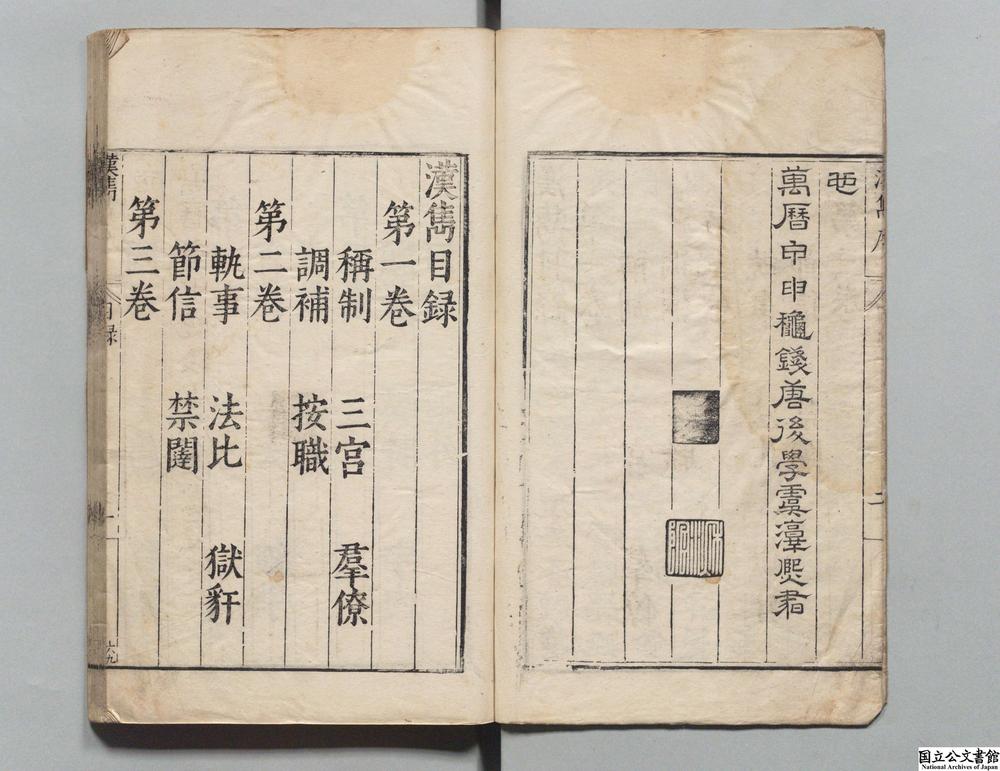 漢雋序 二
也
萬曆甲申龝錢唐後學虞淳熙書
漢雋目録
第一卷
稱制 三宮 羣僚
調補 按職
第二卷
軌事 法比 獄豻
節信 禁闥
第三卷
漢雋 目録 一 六九
国立公文書館
National Archives of Japan